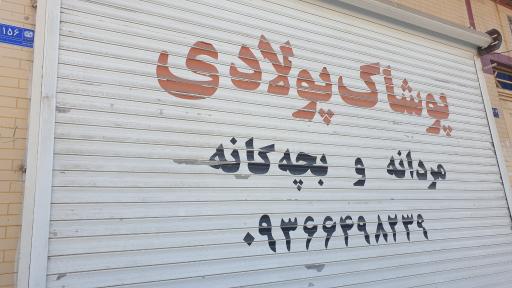 پوشاک پولادی
مردانه و بچه‌کانه
۰۹۳۶۶۴۹۸۲۳۹
۱۵۶